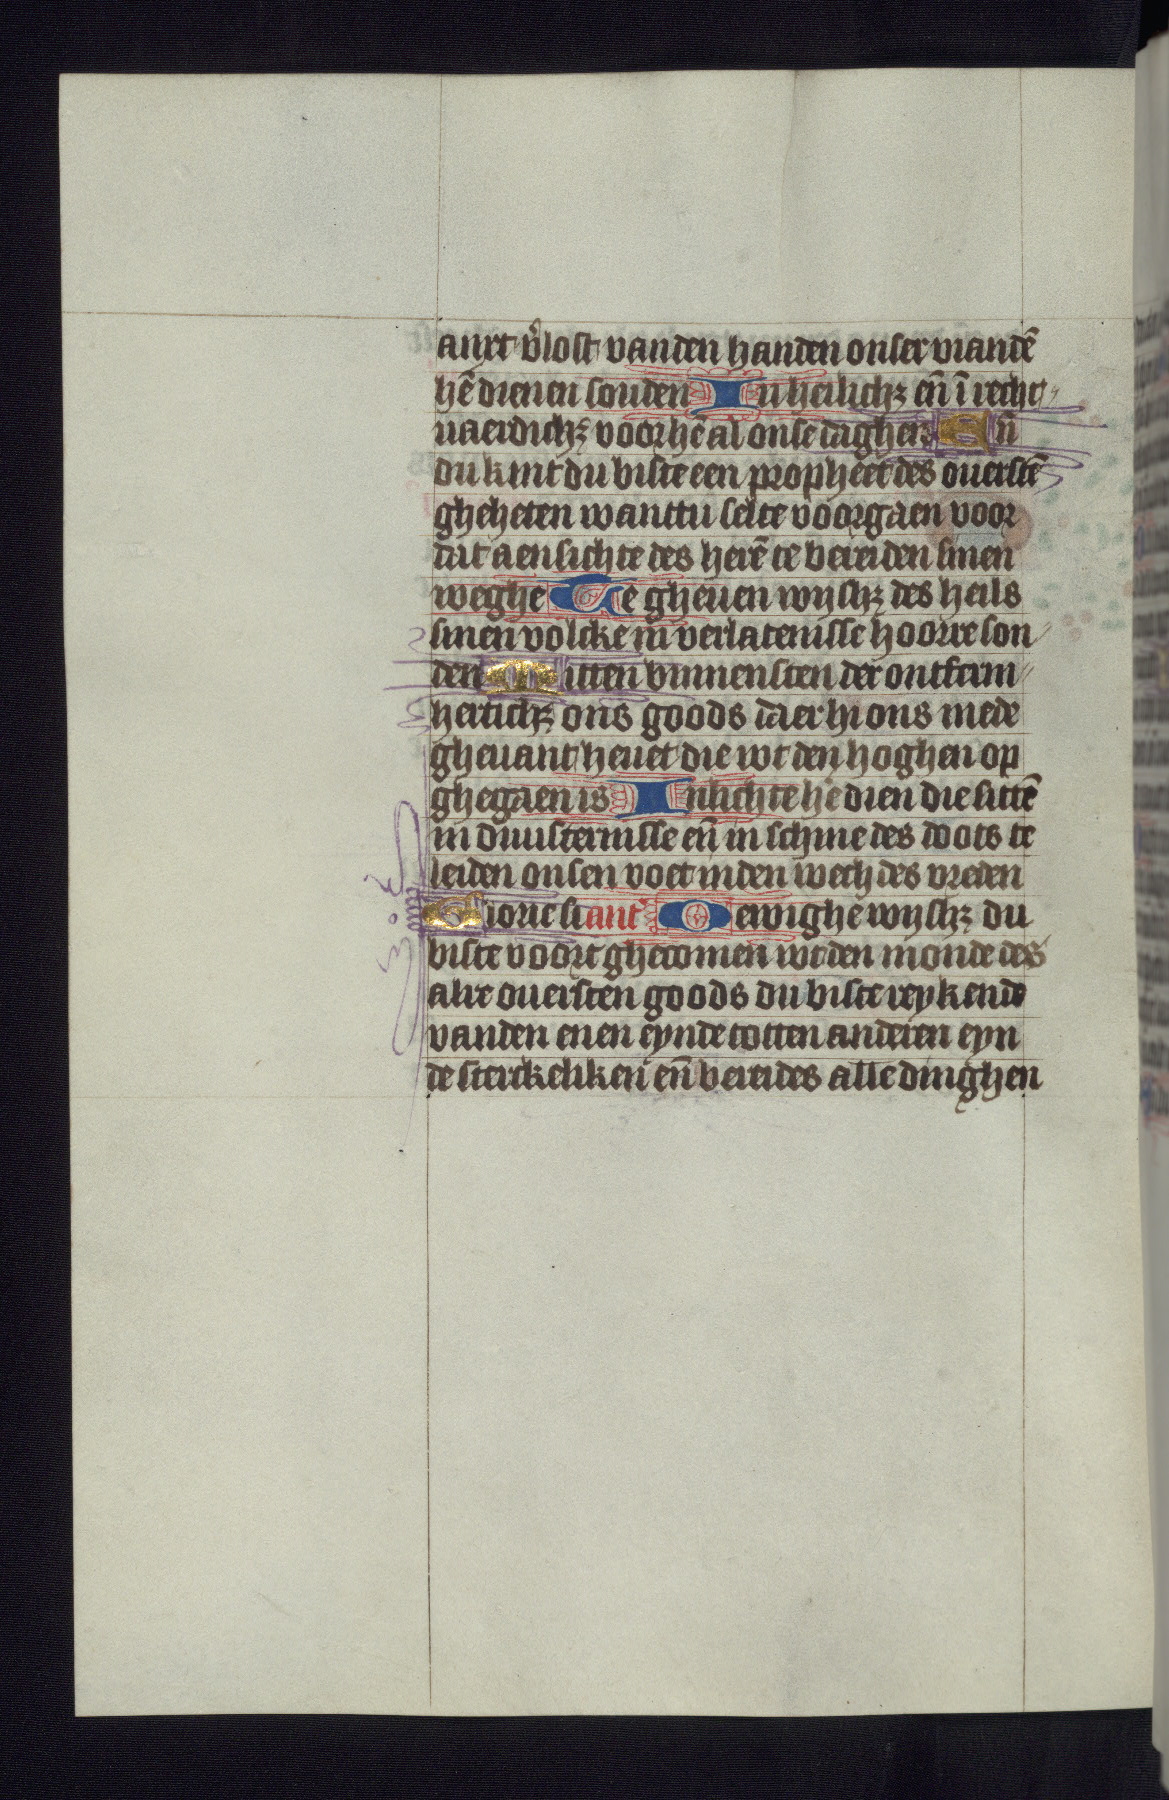 anxt v̉lost vanden handen onser viandē
hē dienen souden In heilichꝫ en̄ ī recht
uaerdichꝫ voor hē al onse daghen En̄
du kint du biste een propheet des ouerstē
gheheten wanttu selte voorgaen voor
dat aensichte des herē te bereiden sinen
weghe Te gheuen wijshꝫ des heils
sinen volcke in verlatenisse hoorre son
den Mitten binnensten der ontferm
hertichꝫ ons goods daer hi ons mede
gheuant heuet die wt den hoghen op
ghegaen is Inlichte hē dien die sittē
in duusternisse en̄ in schine des doots te
leiden onsen voet inden wech des vreden
Glorie si ant' O ewighe wijshꝫ du
biste voort ghecomen wt den monde des
alre ouersten goods du biste reykende
vanden enen eynde totten anderen eyn
de sterckeliken en̄ bereides alle dinghen